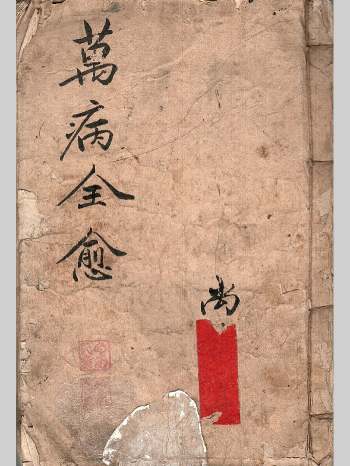 萬病全愈
尚